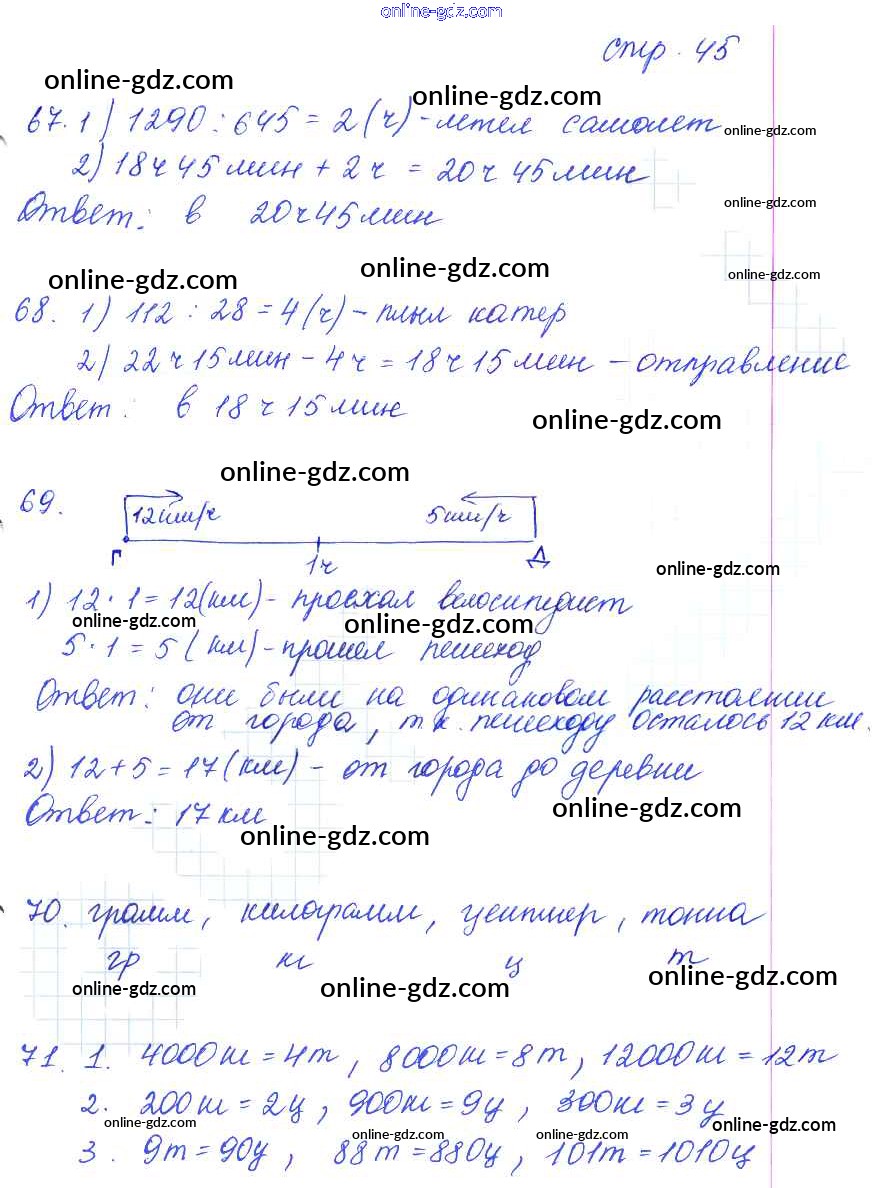 online-gdz.com
стр. 45
online-gdz.com
online-gdz.com
67. 1) 1290 : 645 = 2 (ч) - летел самолет
online-gdz.com
2) 18ч 45 мин + 2 ч = 20ч 45 мин
online-gdz.com
Ответ: в 20ч 45 мин
online-gdz.com
online-gdz.com
online-gdz.com
68. 1) 112 : 28 = 4 (ч) - плыл катер
2) 22 ч 15 мин - 4 ч = 18 ч 15 мин - отправление
Ответ: в 18 ч 15 мин
online-gdz.com
online-gdz.com
69.
12 км/ч 5 км/ч
Г 1ч Д
online-gdz.com
1) 12 · 1 = 12 (км) - проехал велосипедист
online-gdz.com
online-gdz.com
5 · 1 = 5 (км) - прошел пешеход
Ответ: они были на одинаковом расстоянии
от города, т.к. пешеходу осталось 12 км.
2) 12 + 5 = 17 (км) - от города до деревни
Ответ: 17 км
online-gdz.com
online-gdz.com
70. грамм, килограмм, центнер, тонна
гр кг ц т
online-gdz.com
online-gdz.com
online-gdz.com
71. 1. 4000 кг = 4 т, 8000 кг = 8 т, 12000 кг = 12 т
2. 200 кг = 2 ц, 900 кг = 9 ц, 300 кг = 3 ц
online-gdz.com
online-gdz.com
online-gdz.com
online-gdz.com
3. 9 т = 90 ц, 88 т = 880 ц, 101 т = 1010 ц